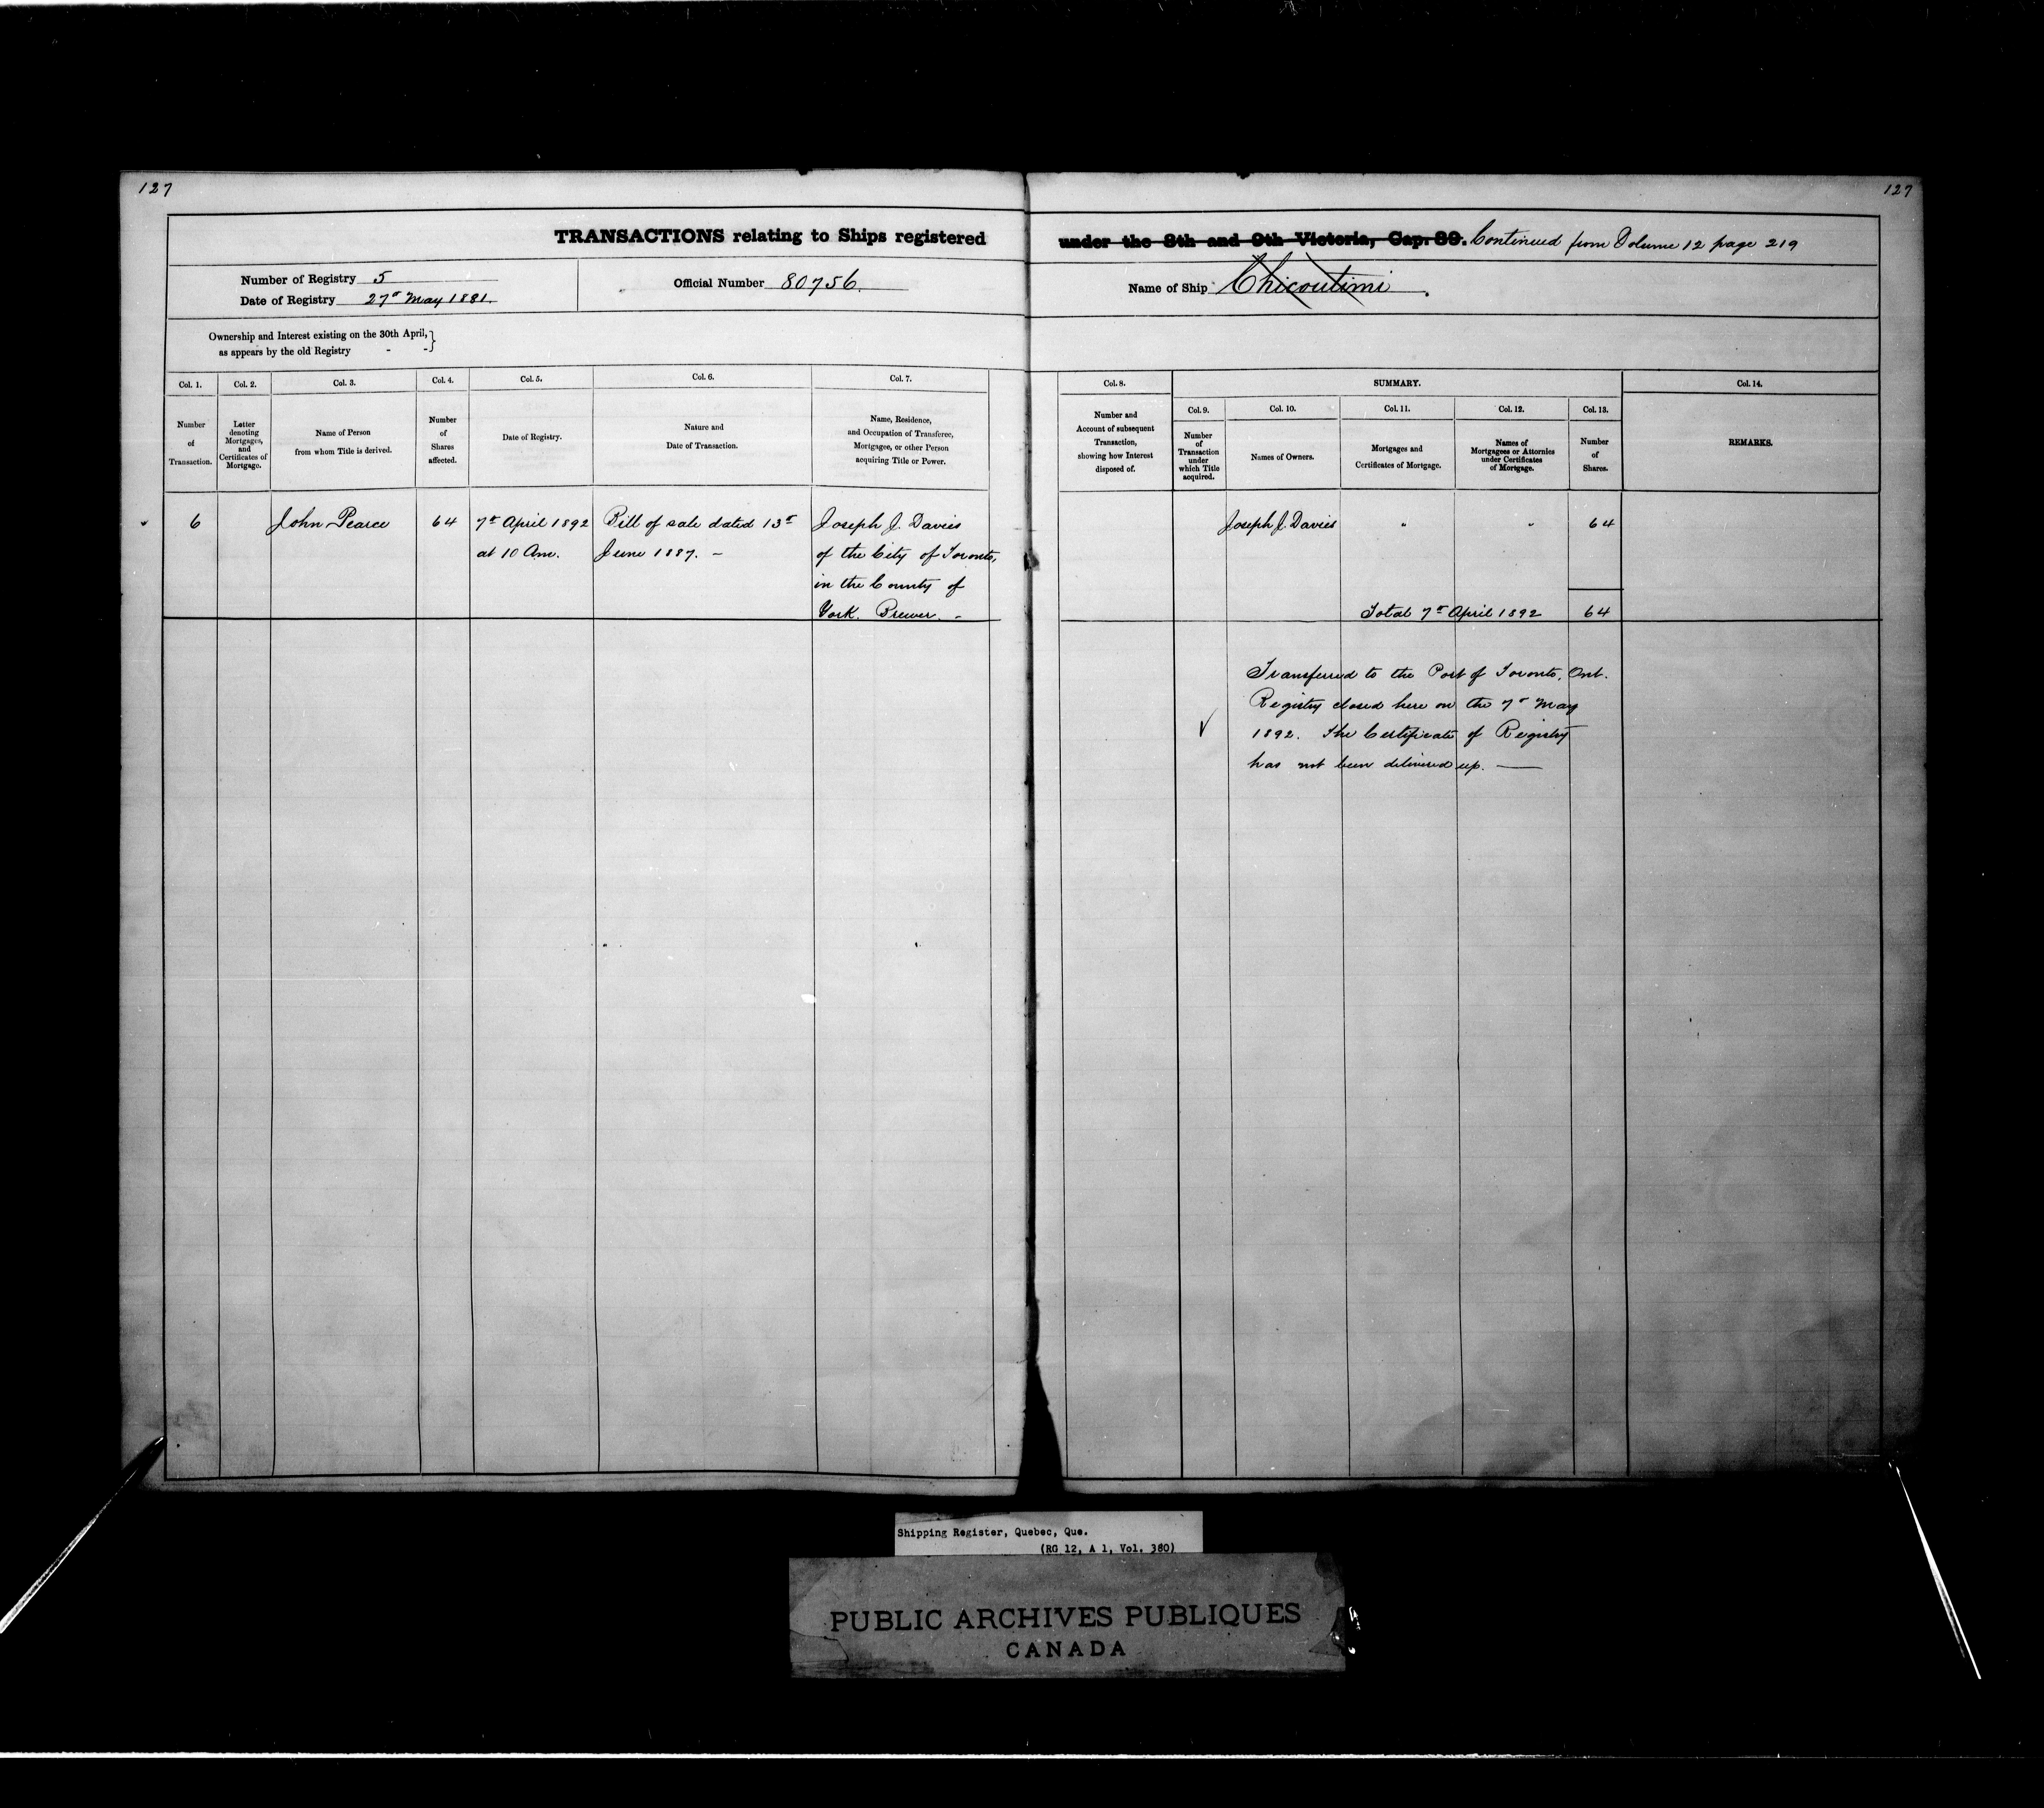 127
127
TRANSACTIONS relating to Ships registered under the 8th and 9th Victoria, Cap. 89. Continued from Volume 12 page 219
Number of Registry 5
Date of Registry 27th May 1881.
Official Number 80756.
Name of Ship Chicoutimi
Ownership and Interest existing on the 30th April, }
as appears by the old Registry - - }
Col. 1.
Number
of
Transaction.
Col. 2.
Letter
denoting
Mortgages,
and
Certificates of
Mortgage.
Col. 3.
Name of Person
from whom Title is derived.
Col. 4.
Number
of
Shares
affected.
Col. 5.
Date of Registry.
Col. 6.
Nature and
Date of Transaction.
Col. 7.
Name, Residence,
and Occupation of Transferee,
Mortgagee, or other Person
acquiring Title or Power.
Col. 8.
Number and
Account of subsequent
Transaction,
showing how Interest
disposed of.
SUMMARY.
Col. 9.
Number
of
Transaction
under
which Title
acquired.
Col. 10.
Names of Owners.
Col. 11.
Mortgages and
Certificates of Mortgage.
Col. 12.
Names of
Mortgagees or Attornies
under Certificates
of Mortgage.
Col. 13.
Number
of
Shares.
Col. 14.
REMARKS.
6
John Pearce
64
7th April 1892
at 10 Am.
Bill of sale dated 13th
June 1887. –
Joseph J. Davies
of the City of Toronto,
in the County of
York. Brewer. –
Joseph J. Davies " " 64
Total 7th April 1892 64
Transferred to the Port of Toronto, Ont.
Registry closed here on the 7th May
1892. The Certificate of Registry
has not been delivered up. —
Shipping Register, Quebec, Que.
(RG 12, A 1, Vol. 380)
PUBLIC ARCHIVES PUBLIQUES
CANADA